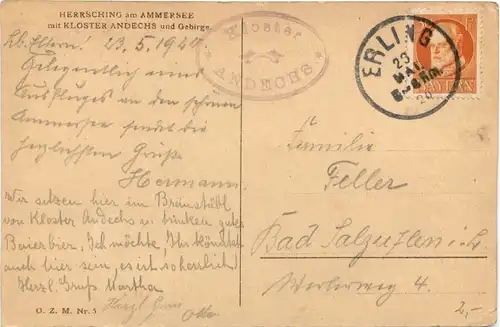 HERRSCHING am AMMERSEE
mit KLOSTER ANDECHS und Gebirge.
Lb. Eltern! 23.5.1920
Gelegentlich eines
Ausfluges an den schönen
Ammersee sendet die
herzlichsten Grüße
Hermann.
Wir sitzen hier im Bräustübl
von Kloster Andechs u. trinken gutes
Baierbier, Ich möchte, Ihr könntet
auch hier sein, es ist so herrlich
Herzl. Gruß Martha
Herzl. Gruß
Otto
O. Z. M. Nr. 5
Kloster
ANDECHS
ERLING
23
MAI
20
BAYERN
Familie
Feller
Bad Salzuflen i. L.
4.
2,-